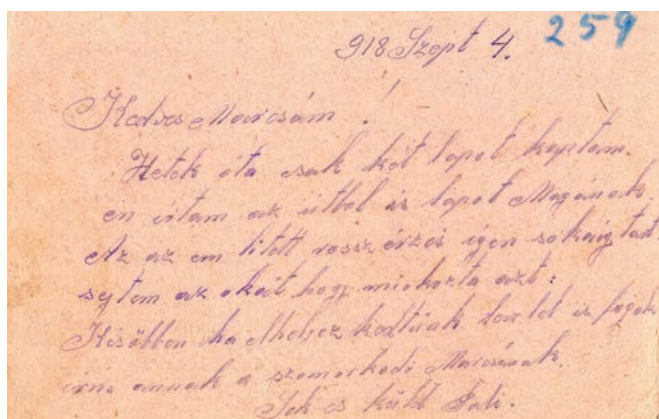 918 Szept 4. 259
Kedves Marcsám !
Hetek óta csak két lapot kaptam.
én irtam az útbol is lapot Magának
Az az em litett rossz érzés igen sokáig tart
sejtem az okát hogy mi okozta azt:
Késöbben ha elhelyez kedtünk lev let is fogok
irni annak a szomorkodi Marcsának.
Sok cs küld Pali.